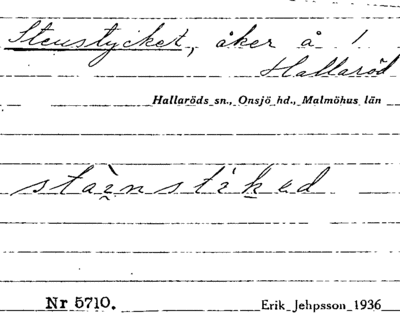 Stenstycket, åker å 1
Hallaröd
Hallaröds sn., Onsjö hd., Malmöhus län
stai̯nstikəd
Nr 5710.
Erik Jehpsson 1936